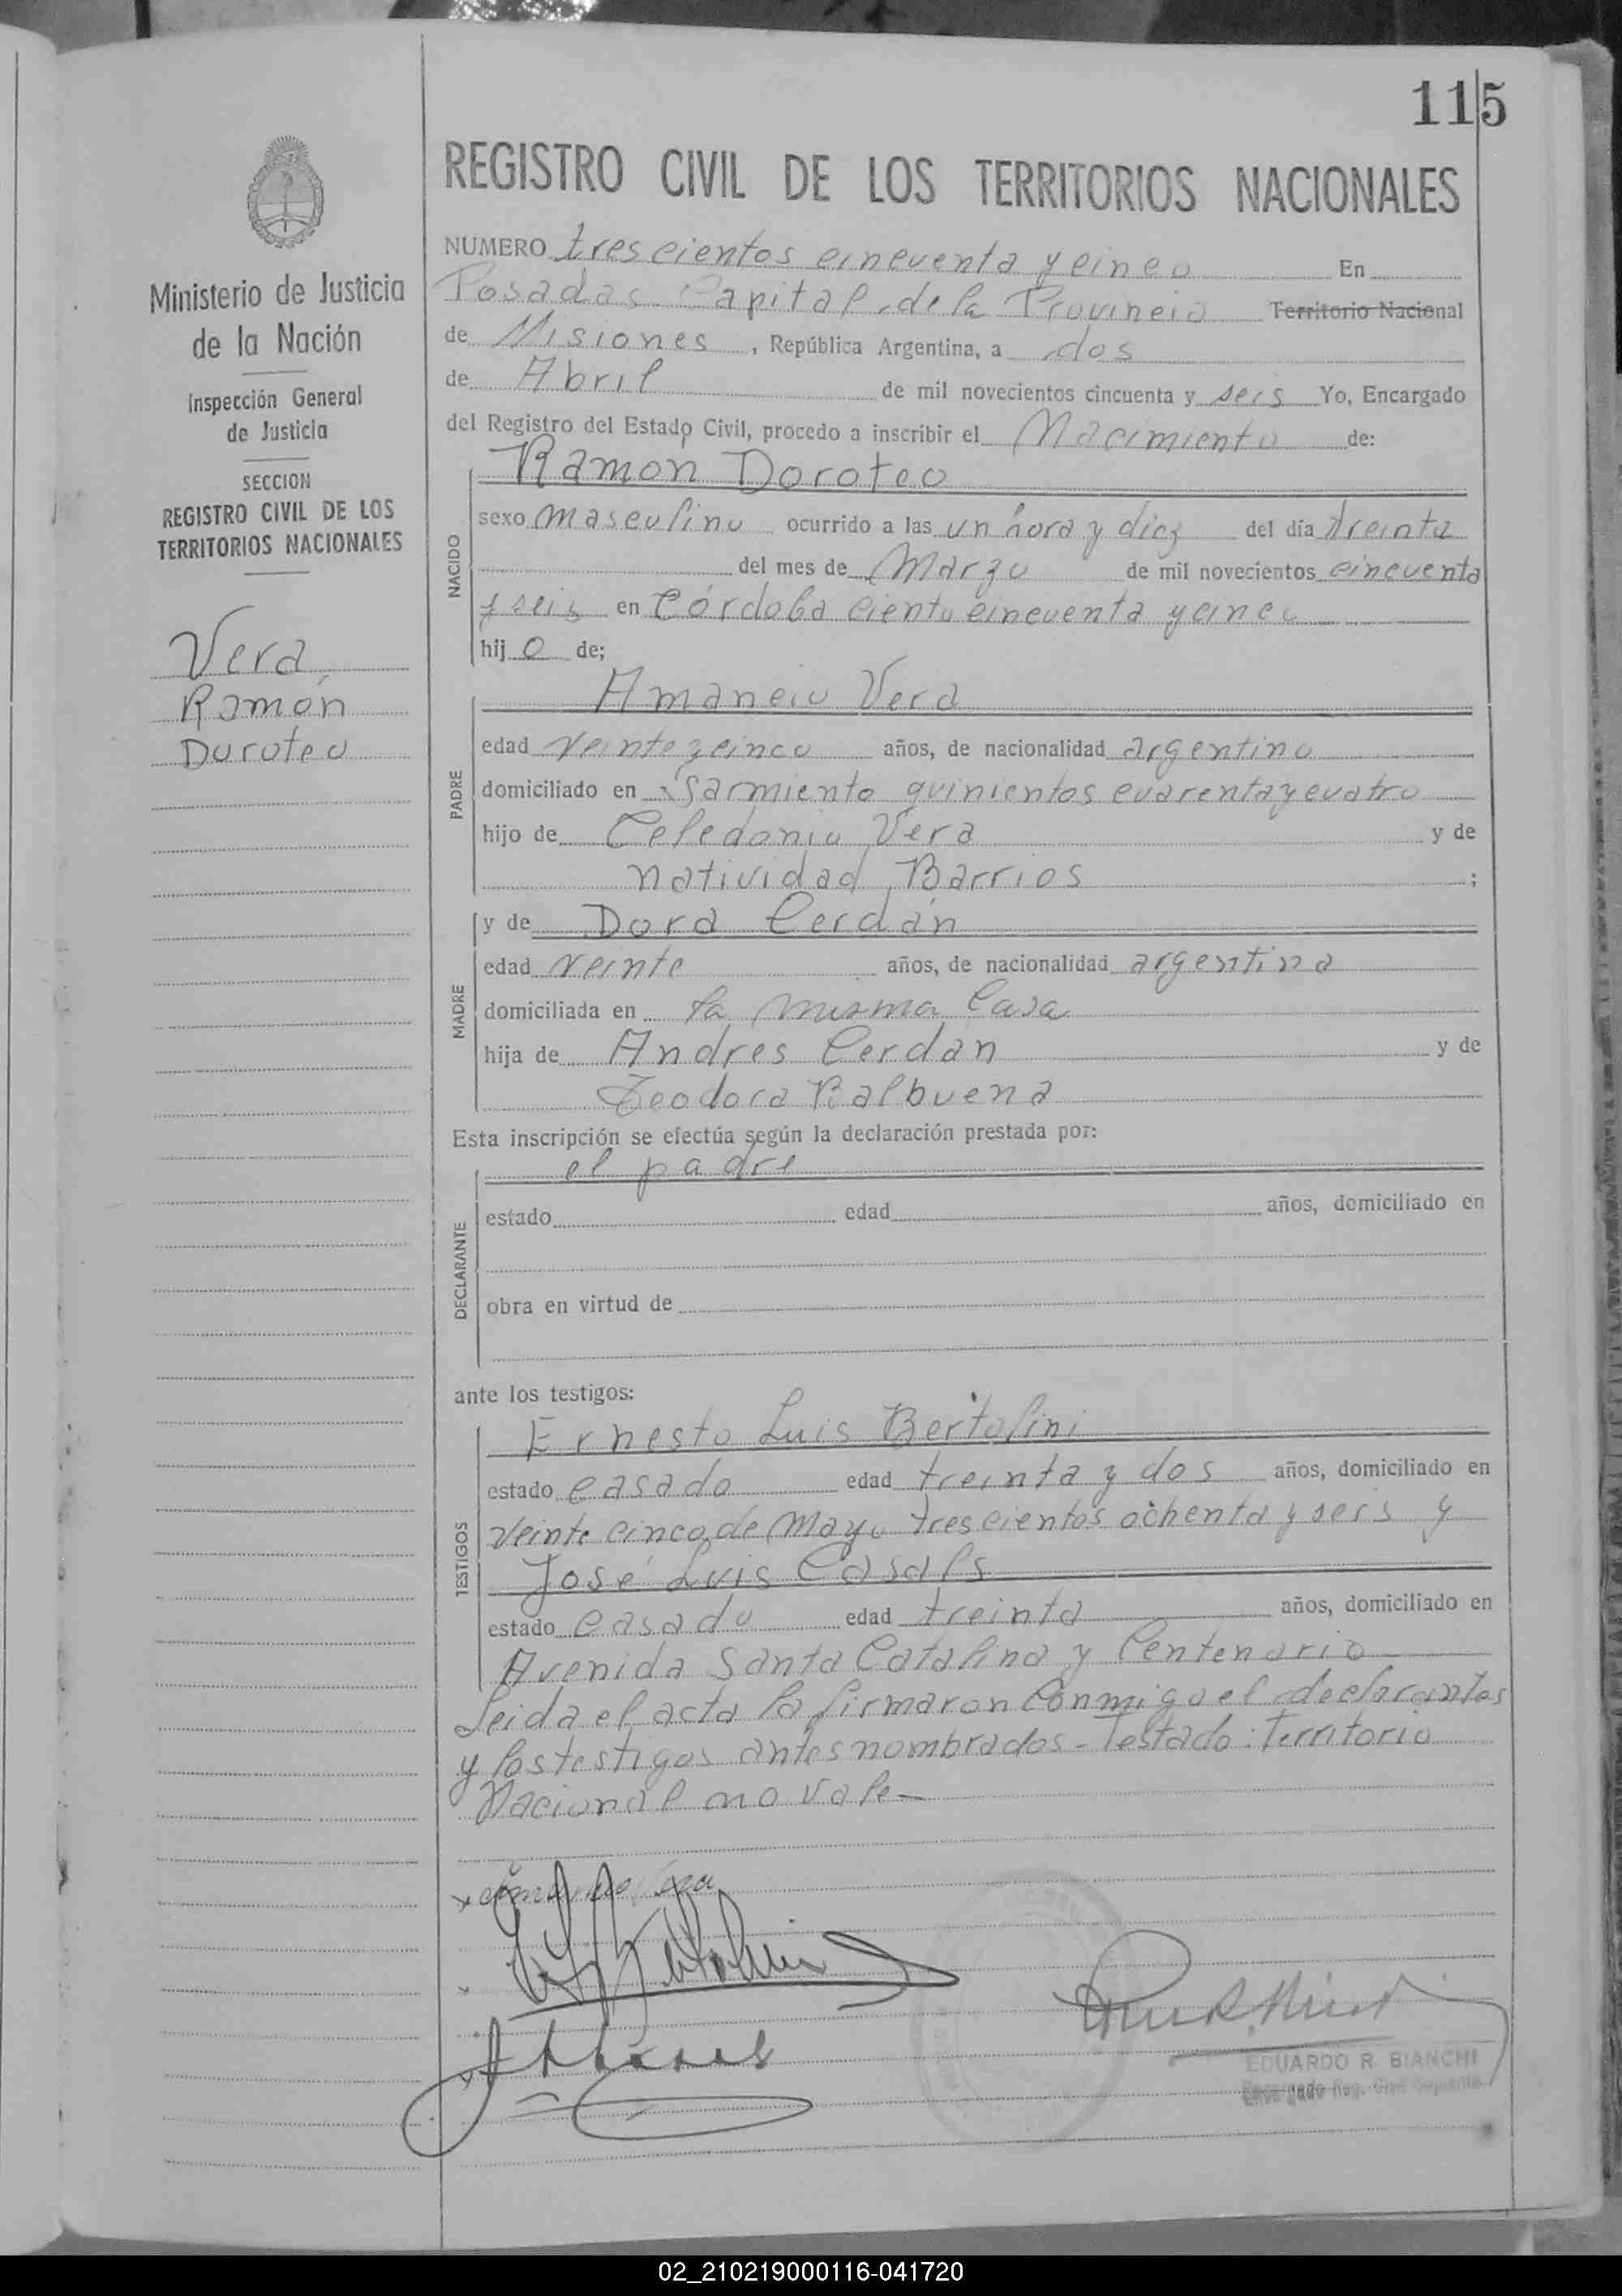 115
REGISTRO CIVIL DE LOS TERRITORIOS NACIONALES
Ministerio de Justicia
de la Nación
Inspección General
de Justicia
SECCION
REGISTRO CIVIL DE LOS
TERRITORIOS NACIONALES
Vera,
Ramón
Doroteo
NUMERO trescientos cincuenta y cinco En
Posadas Capital de la Provincia Territorio Nacional
de Misiones, República Argentina, a dos
de Abril de mil novecientos cincuenta y seis Yo, Encargado
del Registro del Estado Civil, procedo a inscribir el Nacimiento de:
Ramón Doroteo
NACIDO
sexo masculino ocurrido a las un hora y diez del día treinta
del mes de Marzo de mil novecientos cincuenta
y seis en Córdoba ciento cincuenta y cinco
hijo de;
Amancio Vera
PADRE
edad veinte y cinco años, de nacionalidad argentino
domiciliado en Sarmiento quinientos cuarenta y cuatro
hijo de Celedonio Vera y de
Natividad Barrios ;
MADRE
y de Dora Cerdán
edad veinte años, de nacionalidad argentina
domiciliada en la misma Casa
hija de Andres Cerdan y de
Teodora Balbuena
Esta inscripción se efectúa según la declaración prestada por:
el padre
DECLARANTE
estado edad años, domiciliado en
obra en virtud de
ante los testigos:
TESTIGOS
Ernesto Luis Bertolini
estado casado edad treinta y dos años, domiciliado en
Veinte cinco de Mayo trescientos ochenta y seis y
José Luis Casals
estado casado edad treinta años, domiciliado en
Avenida Santa Catalina y Centenario
Leida el acta la firmaron conmigo el declarantes
y los testigos antes nombrados - Testado: Territorio
Nacional no vale -
EDUARDO R. BIANCHI
Encargado Reg. Civil Suplente
02_210219000116-041720